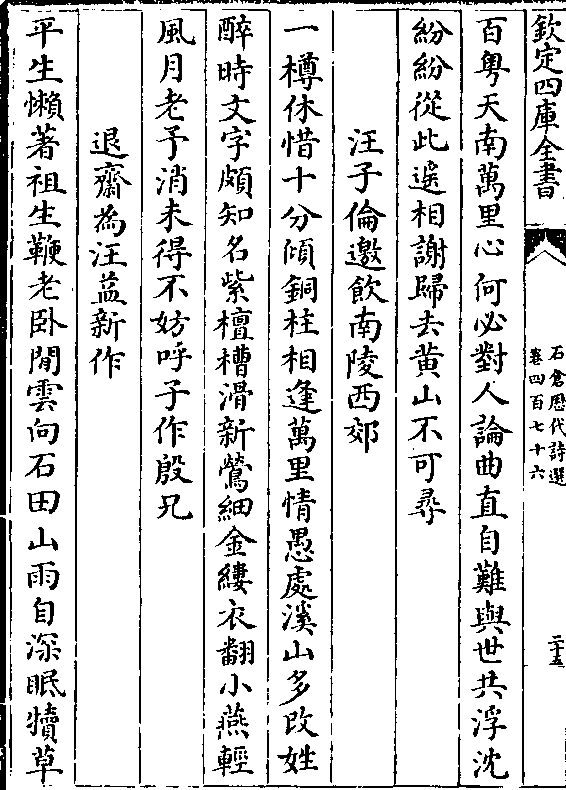 欽定四庫全書
石倉歷代詩選
卷四百七十六
二十五
百粤天南萬里心何必對人論曲直自難與世共浮沈
紛紛從此遥相謝歸去黄山不可尋
汪子倫邀飲南陵西郊
一樽休惜十分傾銅柱相逢萬里情愚處溪山多改姓
醉時文字頗知名紫檀槽滑新鶯細金縷衣翻小燕輕
風月老予消未得不妨呼子作殷兄
退齋為汪益新作
平生懶著祖生鞭老卧閒雲向石田山雨自深眠犢草